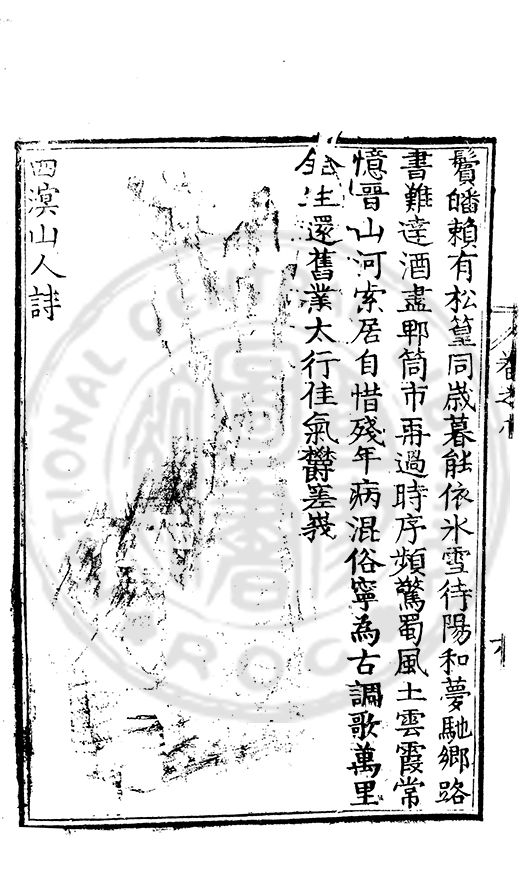 鬢皤賴有松篁同歲暮能依氷雪待陽和夢馳鄉路
書難達酒盡郫筒市再過時序頻驚蜀風土雲霞常
憶晉山河索居自惜殘年病混俗寧為古調歌萬里
生還舊業太行佳氣欝嵳峩
四溟山人詩
卷之十